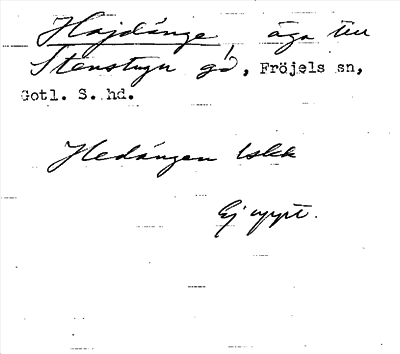 Hajdänge, äga till
Stenstugu gd, Fröjels sn,
Gotl. S. hd.
Hedängen lskk
Ej uppt.